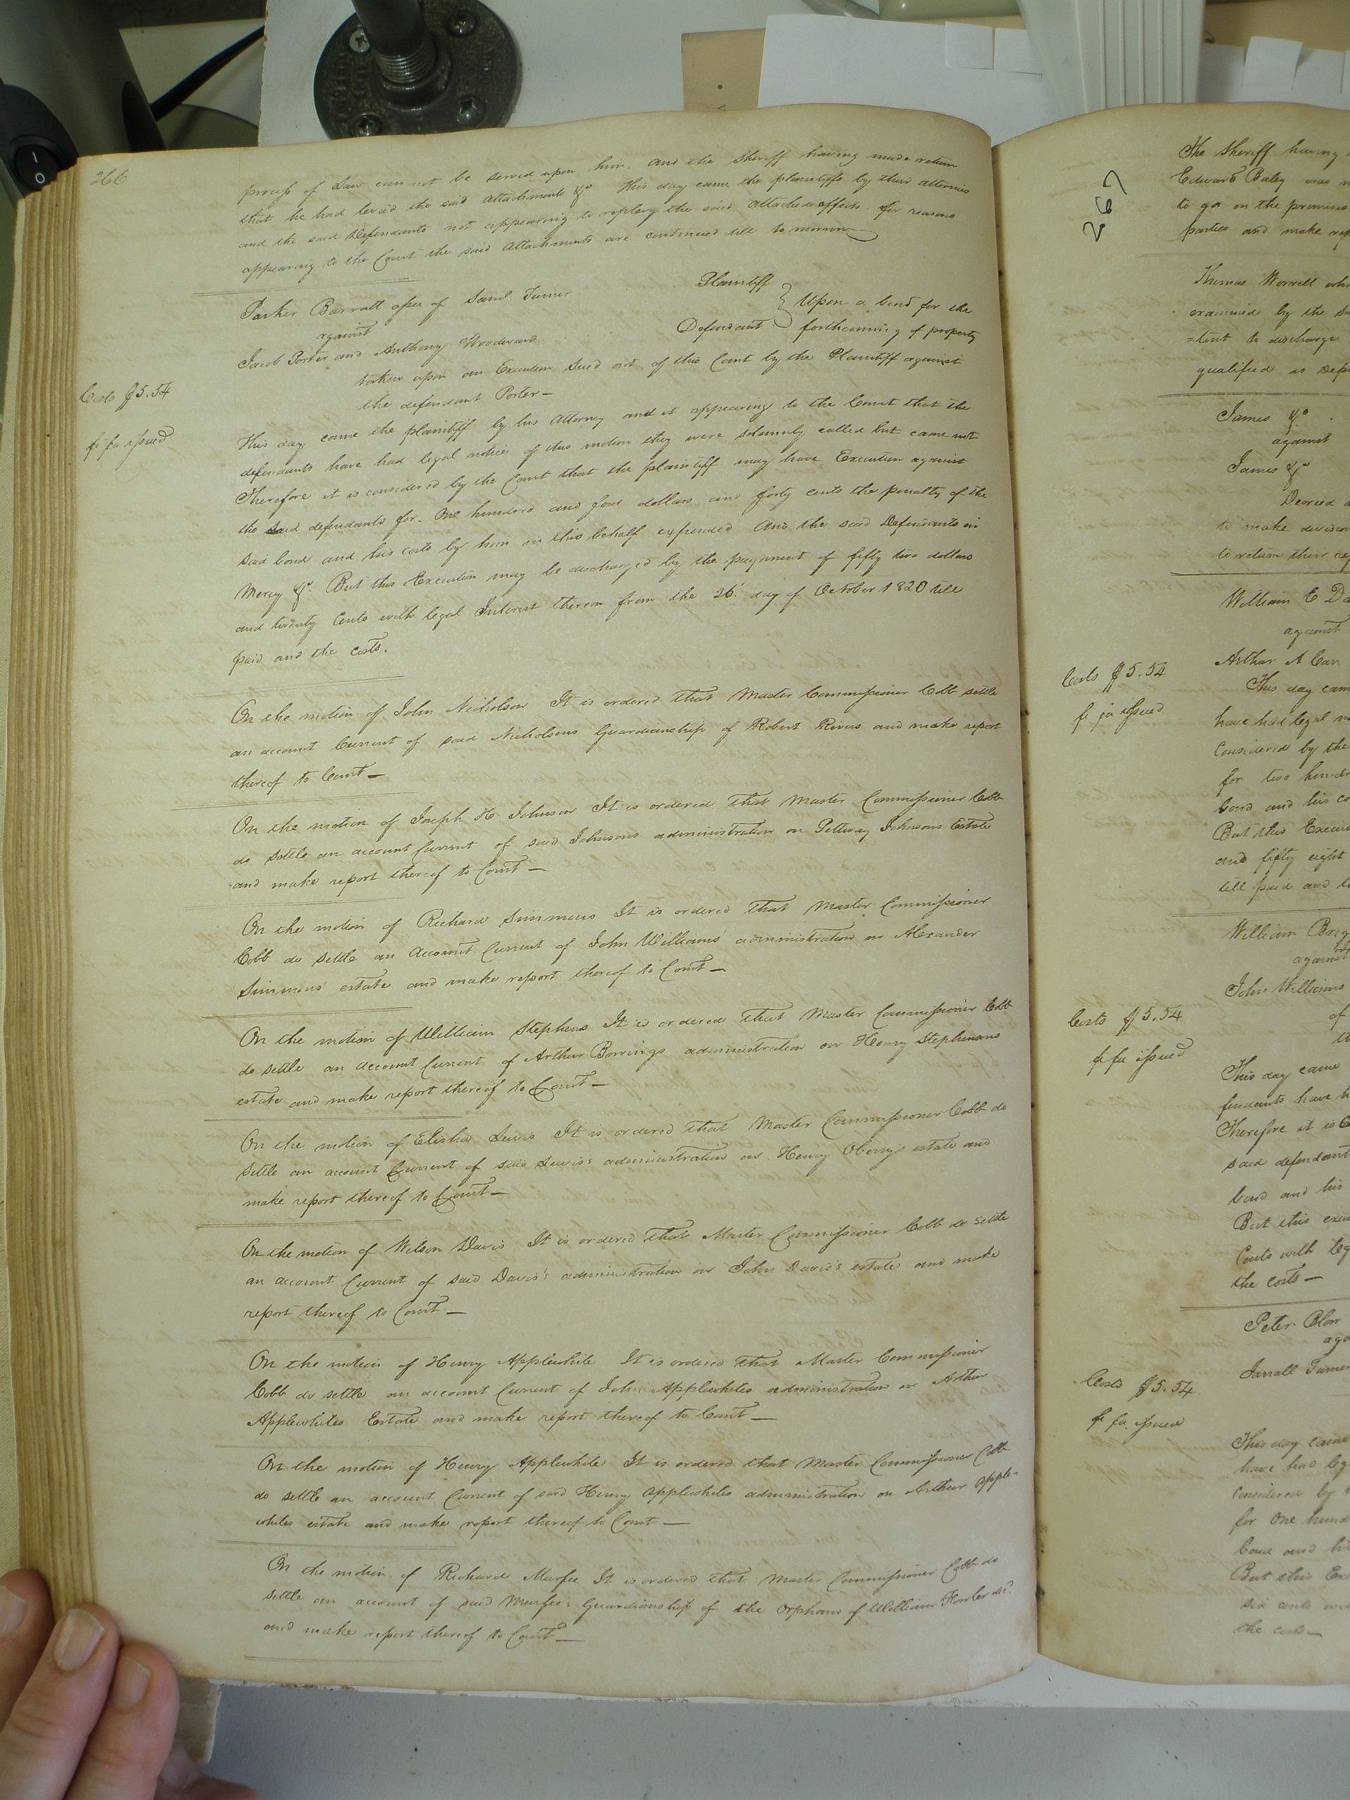 266
process of Law can not be served upon him and the Sheriff having made return
that he had levied the said attachment &c This day came the plaintiffs by their attornies
and the said Defendants not appearing to replevy the said attached effects for reasons
appearing to the Court the said attachments are continued till to morrow
Parker Barratt assee of Saml Turner Plaintiff
against
Upon a bond for the
Jacob Porter and Anthony Woodward Defendant forthcoming of property
taken upon an Execution Sued out of this Court by the Plaintiff against
the defendant Porter
Costs $5.54
fi fa issued
This day came the plaintiff by his Attorney and it appearing to the Court that the
defendants have had legal notice of this motion they were solemnly called but came not
Therefore it is considered by the Court that the plaintiff may have Execution against
the said defendants for One hundred and four dollars and forty cents the penalty of the
said bond and his costs by him in this behalf expended And the said Defendants in
Mercy &c. But this Execution may be discharged by the payment of fifty two dollars
and twenty Cents with legal Interest thereon from the 26 day of October 1820 till
paid and the costs.
On the motion of John Nicholson It is ordered that Master Commissioner Cobb settle
an account Current of said Nicholsons Guardianship of Robert Rivers and make report
thereof to Court
On the motion of Joseph H Johnson It is ordered that Master Commissioner Cobb
do settle an account Current of said Johnsons administration on Pettway Johnsons Estate
and make report thereof to Court
On the motion of Richard Simmons It is ordered that Master Commissioner
Cobb do settle an Account Current of John Williams administration on Alexander
Simmons' estate and make report thereof to Court
On the motion of William Stephens It is ordered that Master Commissioner Cobb
do settle an account Current of Arthur Bowings administration on Henry Stephensons
estate and make report thereof to Court
On the motion of Elisha Lewis It is ordered that Master Commissioner Cobb do
settle an account Current of said Lewis's administration on Henry Oberry's estate and
make report thereof to Court
On the motion of Wilson Davis It is ordered that Master Commissioner Cobb do settle
an account Current of said Davis's administration on John Davis's estate and make
report thereof to Court
On the motion of Henry Applewhite It is ordered that Master Commissioner
Cobb do settle an account Current of John Applewhites administration on Arthur
Applewhites Estate and make report thereof to Court
On the motion of Henry Applewhite It is ordered that Master Commissioner Cobb
do settle an account Current of said Henry Applewhites administration on Arthur Apple-
whites estate and make report thereof to Court
On the motion of Richard Murfee It is ordered that Master Commissioner Cobb do
settle an account of said Murfee's Guardianship of the Orphans of William Fowler decd
and make report thereof to Court
267
The Sheriff having
Edward Bailey was
to go on the premises
parties and make
Thomas Worrell
examined by the
=tent to discharge
qualified as Dep
James &c
against
James &c
Decreed
to make
to return their
William E
against
Arthur A
Costs $5.54
fi fa issued
This day
have had legal
Considered by the
for two
bond and his
But this
and fifty eight
till paid and
William
against
John Williams
of
Costs $5.54
fi fa issued
This day came
fendants have
Therefore it is
said defendant
bond and his
But this
Cents with
the costs
Peter Blow
Jarrall
Costs $5.54
fi fa issued
This day came
have had
considered by
for One
bond and
But this
six cents
the costs